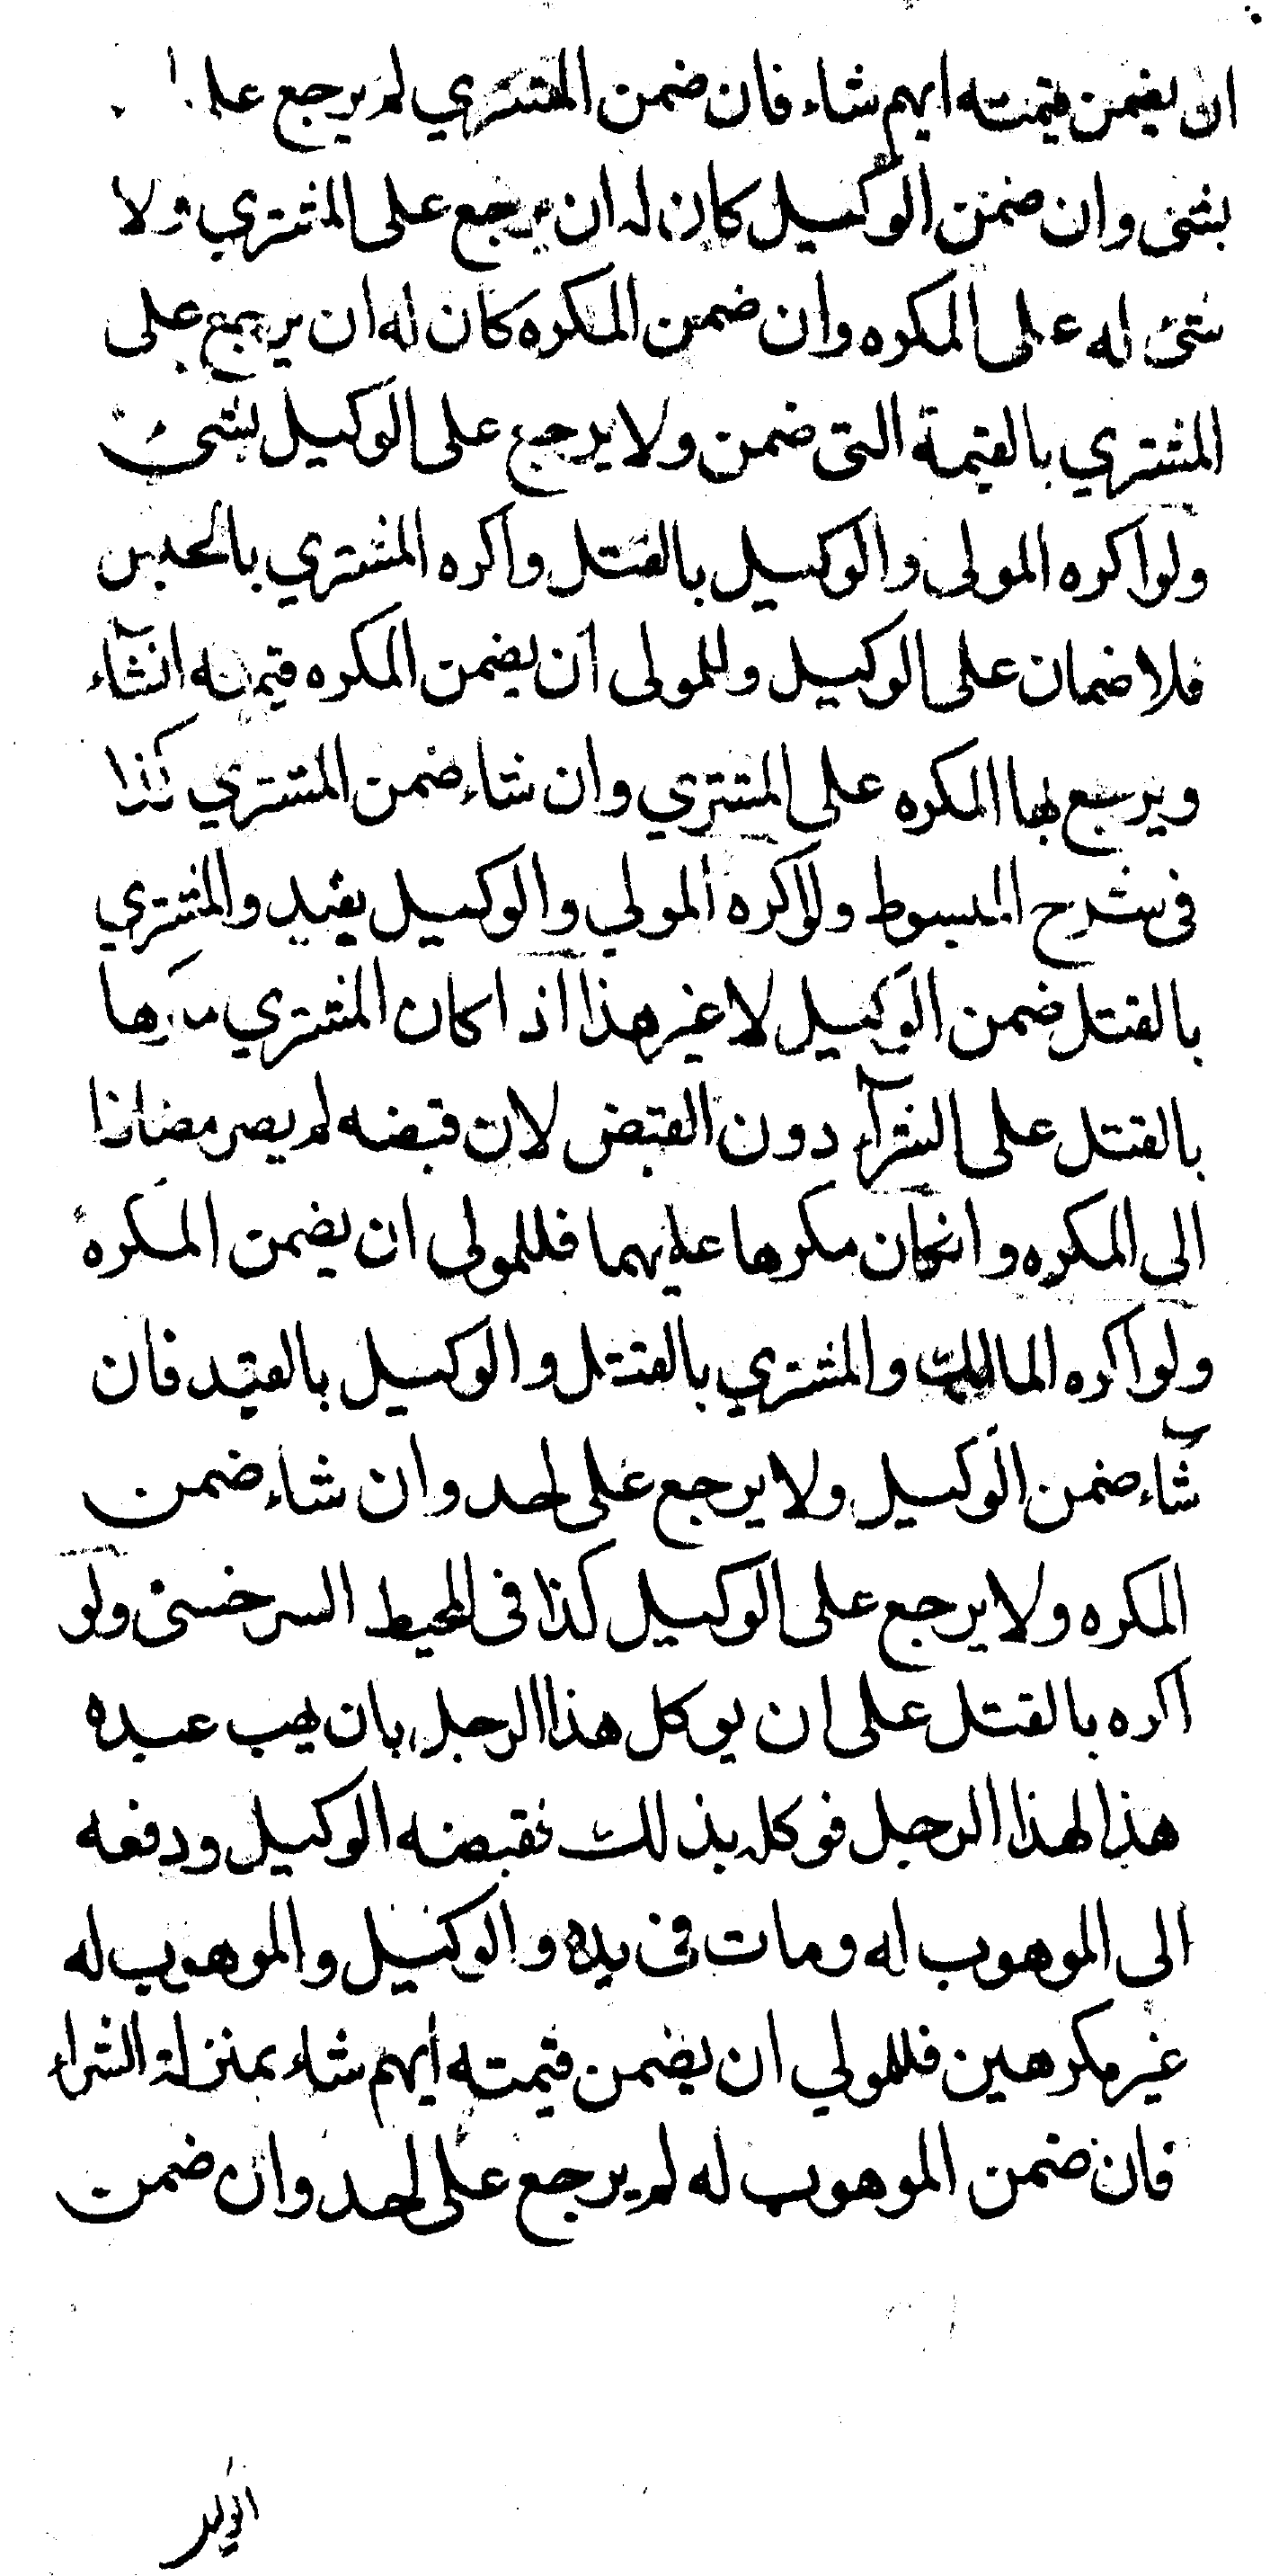 ان يضمن قيمته ايهم شاء فان ضمن المشتري لم يرجع على
بشئ وان ضمن الوكيل كان له ان يرجع على المشتري ولا
شئ له على المكره وان ضمن المكره كان له ان يرجع على
المشتري بالقيمة التى ضمن ولا يرجع على الوكيل بشئ
ولو اكره المولى والوكيل بالقتل واكره المشتري بالحبس
فلا ضمان على الوكيل وللمولى ان يضمن المكره قيمته انشآء
ويرجع بها المكره على المشتري وان شاء ضمن المشتري كذا
فى شرح المبسوط ولو اكره المولي والوكيل بقيد والمشتري
بالقتل ضمن الوكيل لا غير هذا اذا كان المشتري مكرها
بالقتل على الشرآء دون القبض لان قبضه لم يصر مضافا
الى المكره وانكان مكرها عليهما فللمولى ان يضمن المكره
ولو اكره المالك والمشتري بالقتل والوكيل بالقيد فان
شآء ضمن الوكيل ولا يرجع على احد وان شاء ضمن
المكره ولا يرجع على الوكيل كذا فى المحيط السرخسى ولو
اكره بالقتل على ان يوكل هذا الرجل بان يهب عبده
هذا لهذا الرجل فوكله بذلك فقبضه الوكيل ودفعه
الى الموهوب له ومات فى يده والوكيل والموهوب له
غير مكرهين فللمولي ان يضمن قيمته ايهم شاء بمنزلة الشراء
فان ضمن الموهوب له لم يرجع على احد وان ضمن
الوكيل